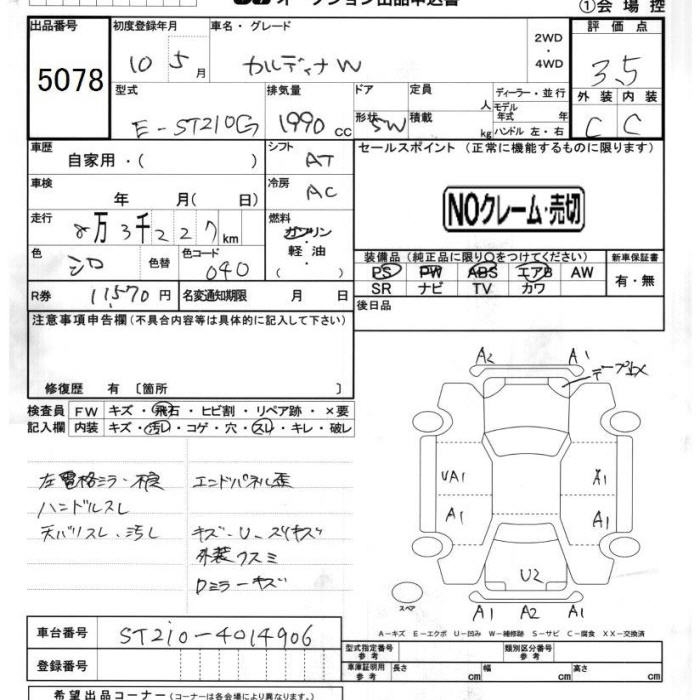 オークション出品申込書
①会場控
出品番号
5078
初度登録年月
10 5月
車名・グレード
カルディナW
2WD
・
4WD
評価点
3.5
外装 内装
C C
型式
E-ST210G
排気量
1990 cc
ドア
形状 SW
定員
人
積載
kg
ディーラー・並行
モデル年式 年
ハンドル 左・右
車歴
自家用・( )
シフト
AT
セールスポイント (正常に機能するものに限ります)
NOクレーム・売切
車検
年 月( 日)
冷房
AC
走行
8万3千227km
燃料
ガソリン
・軽油・
( )
色
シロ
色替
色コード
040
装備品(純正品に限り○をつけてください)
PS PW ABS エアB AW
SR ナビ TV カワ
新車保証書
有・無
R券 11,570円
名変通知期限 月 日
後日品
注意事項申告欄(不具合内容等は具体的に記入して下さい)
修復歴 有 〔箇所 〕
検査員記入欄
FW キズ・飛石・ヒビ割・リペア跡・×要
内装 キズ・汚レ・コゲ・穴・スレ・キレ・破レ
左電格ミラー不良
ハンドルスレ
天バリスレ・汚し
エンドパネル歪
キズ・U・スリキズ
外装クスミ
Dミラーキズ
A2 A1
UA1 A1
A1 A1
U2
A1 A2 A1
スペア
A-キズ E-エクボ U-凹み W-補修跡 S-サビ C-腐食 XX-交換済
車台番号
ST210-4014906
登録番号
型式指定番号
参考
類別区分番号
参考
車庫証明用
参考
長さ cm 幅 cm 高さ cm
希望出品コーナー(コーナーは各会場により異なります。)